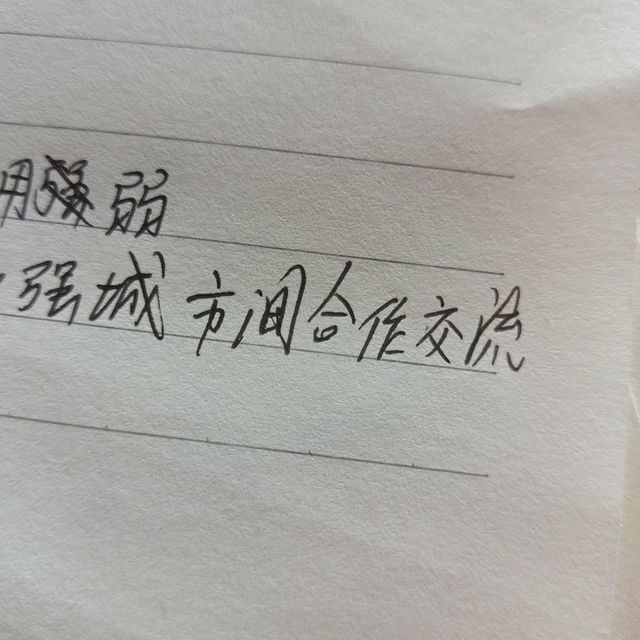 用弱
强城市间合作交流